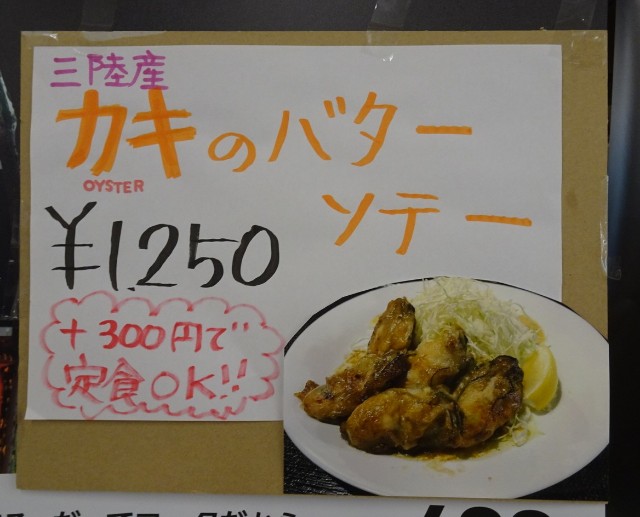 三陸産
カキのバター
OYSTER
ソテー
¥1,250
+300円で
定食OK!!